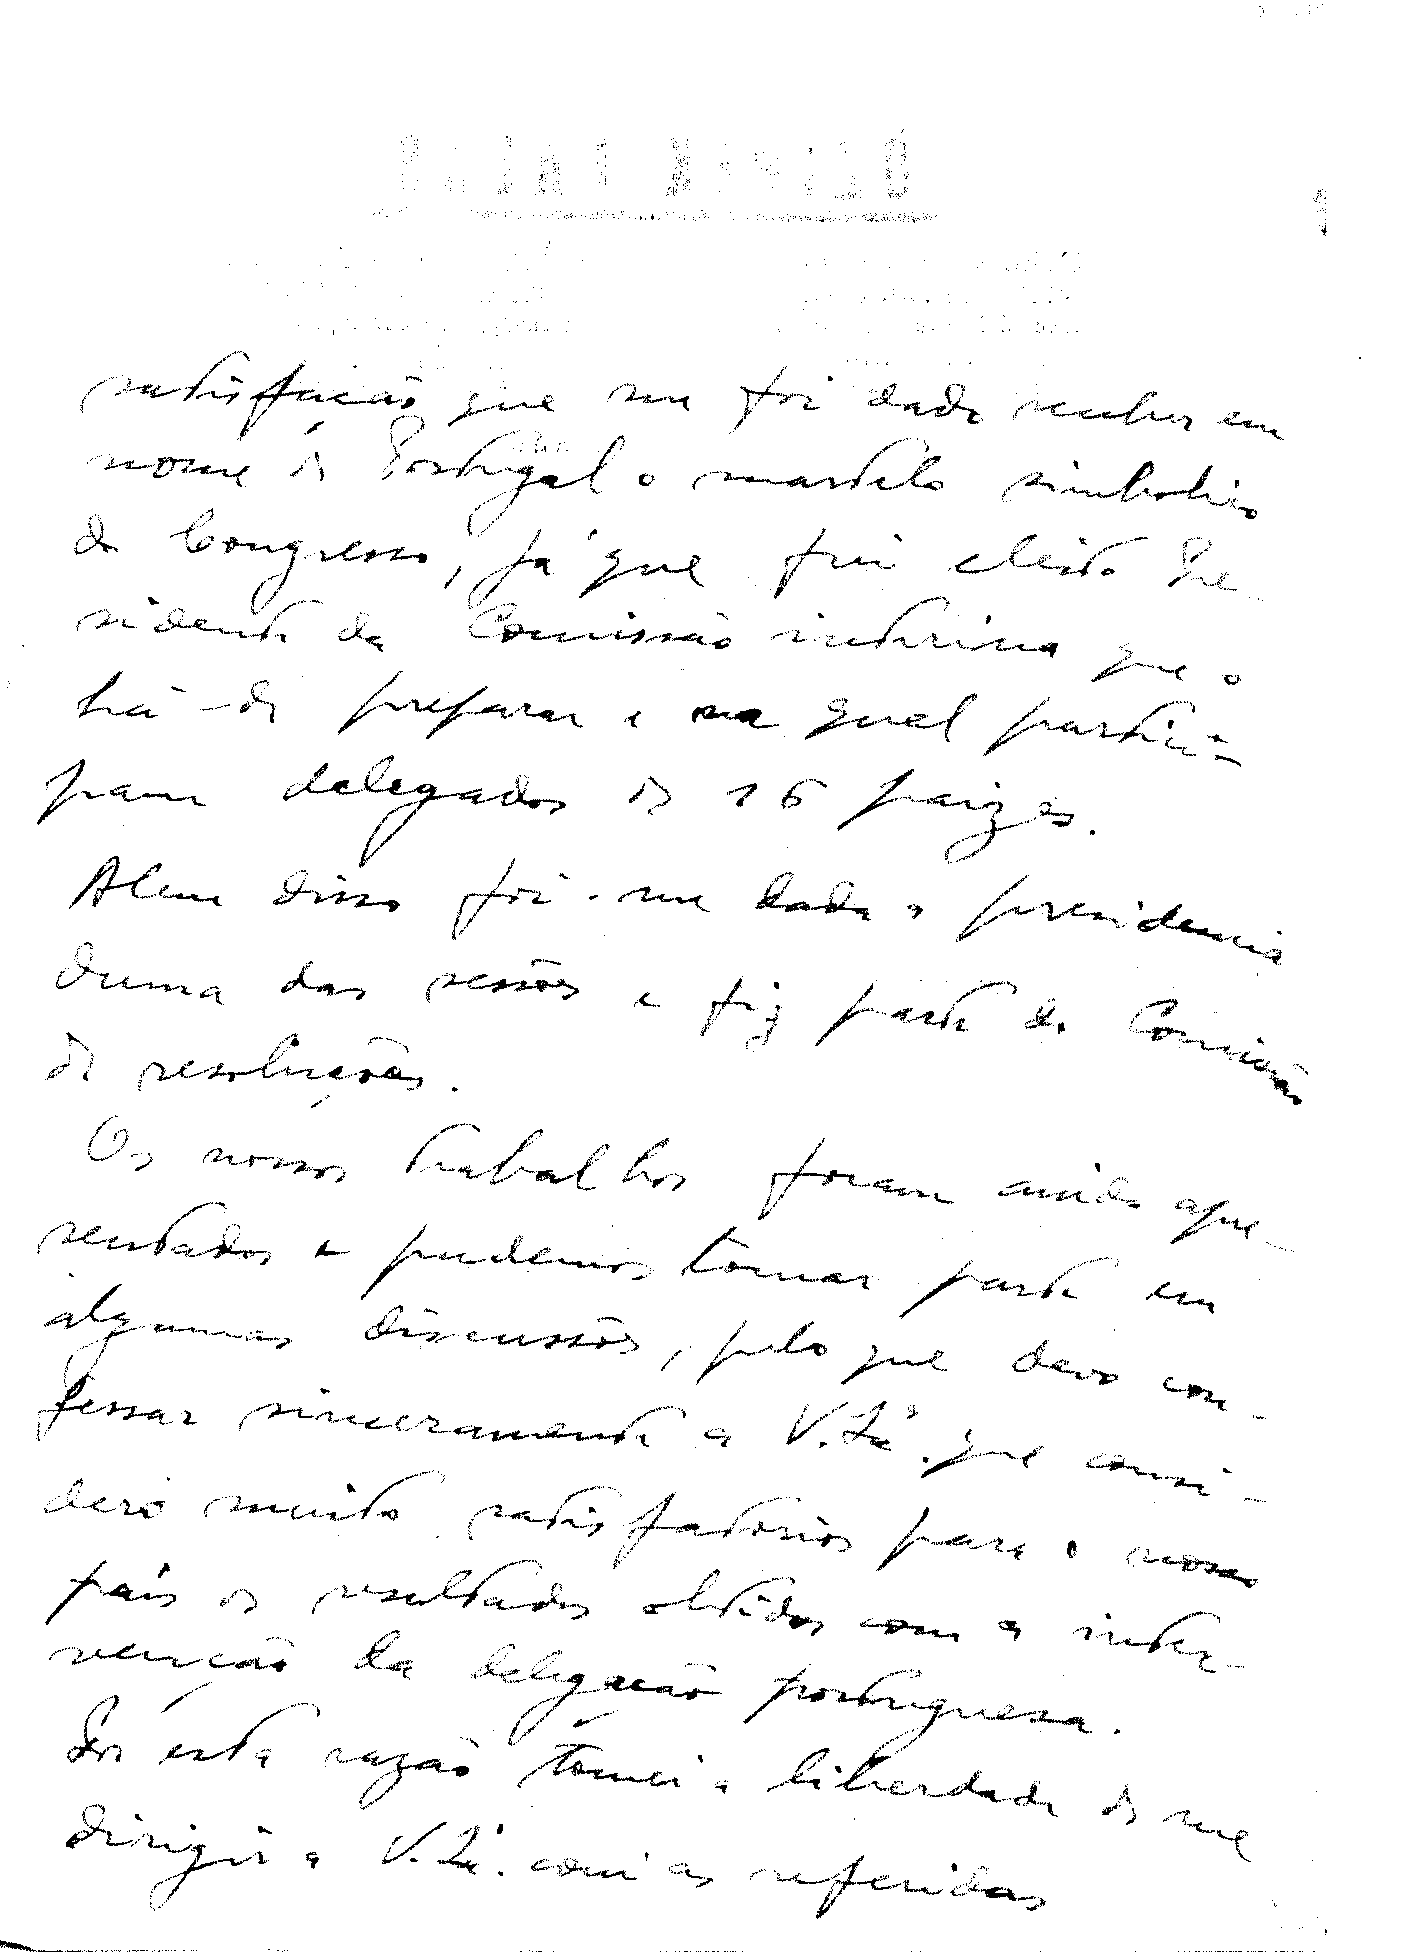 satisfação que me foi dada receber em
nome de Portugal o martelo simbolico
do Congresso, já que fui eleito Pre-
sidente da Comissão interina que o
há-de preparar e na qual partici-
pam delegados de 16 paizes.
Alem disso foi-me dada a presidencia
duma das sessões e fiz parte da Comissão
de resoluções.
Os nossos trabalhos foram ainda apre-
sentados e pudemos tomar parte em
algumas discussões, pelo que devo con-
fessar sinceramente a V. Exª. que consi-
dero muito satisfatorios para o nosso
país os resultados obtidos com a inter-
venção da delegação portuguesa.
Por esta razão tomei a liberdade de me
dirigir a V. Exª. com as referidas